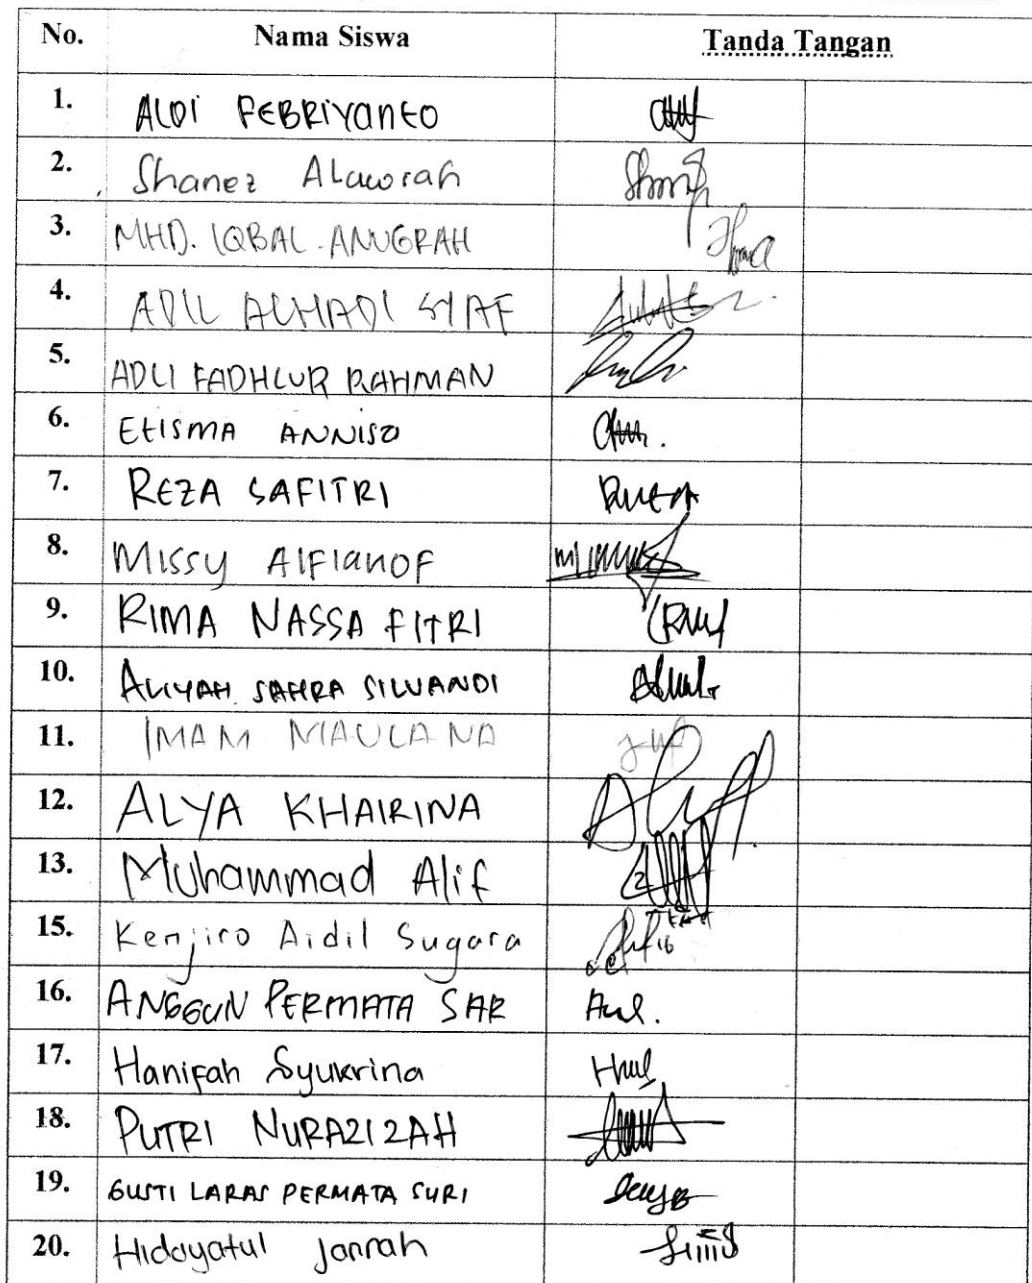 No. Nama Siswa Tanda Tangan
1. ALDI FEBRIYANTO
2. Shanez Alawrah
3. MHD. IQBAL ANUGRAH
4. ADIL ALHADI SYAF
5. ADLI FADHLUR RAHMAN
6. EtISMA ANNISA
7. REZA SAFITRI
8. MISSY AlFIANOF
9. RIMA NASSA FITRI
10. ALIYAH SAHRA SILVANDI
11. IMAM MAULANA
12. ALYA KHAIRINA
13. Muhammad Alif
15. Kenjiro Aidil Sugara
16. ANGGUN PERMATA SAR
17. Hanifah Syukrina
18. PUTRI NURAZIZAH
19. GUSTI LARAS PERMATA SURI
20. Hidayatul Jannah